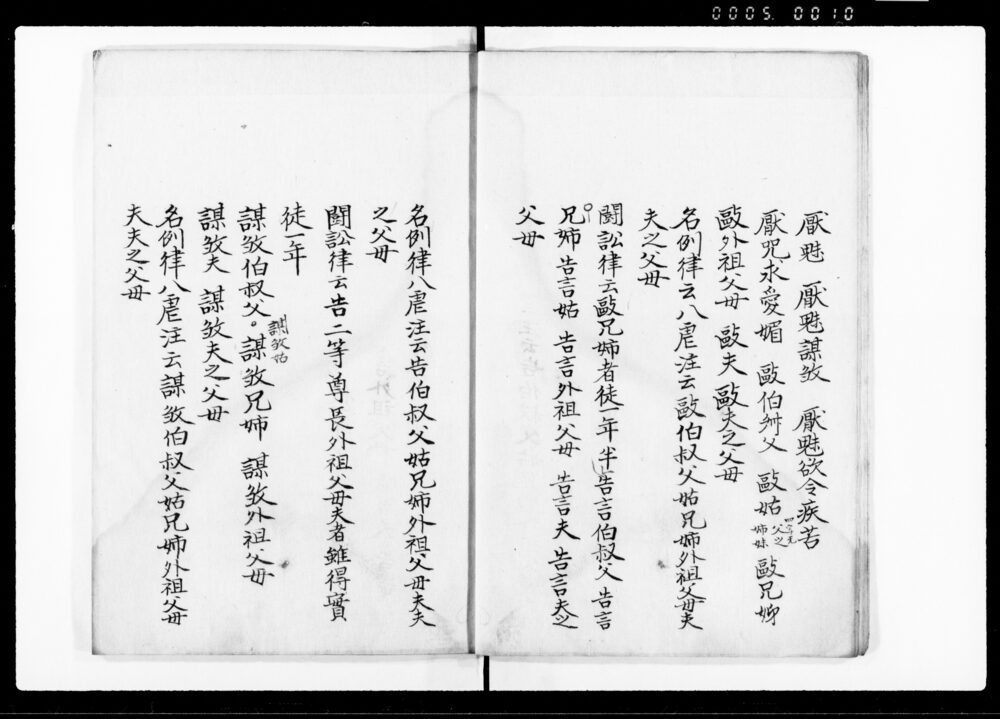 0005. 0010
厭魅 厭魅謀殺 厭魅欲令疾苦
厭咒求愛媚 毆伯叔父 毆姑 父之姉妹 毆兄姉
毆外祖父母 毆夫 毆夫之父母
名例律云八虐注云毆伯叔父姑兄姉外祖父母夫
夫之父母
闘訟律云毆兄姉者徒一年半告言伯叔父 告言
兄姉 告言姑 告言外祖父母 告言夫 告言夫之
父母
名例律八虐注云告伯叔父姑兄姉外祖父母夫夫
之父母
闘訟律云告二等尊長外祖父母夫者雖得實
徒一年
謀殺伯叔父。謀殺姑 謀殺兄姉 謀殺外祖父母
謀殺夫 謀殺夫之父母
名例律八虐注云謀殺伯叔父姑兄姉外祖父母
夫夫之父母